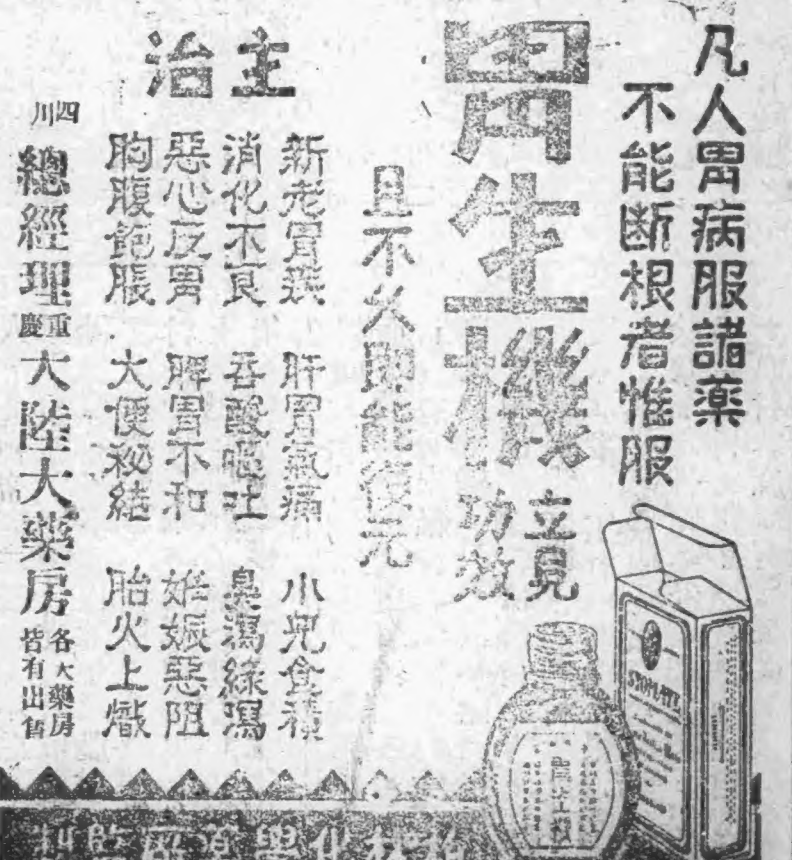 凡人胃病服諸藥
不能断根者惟服
胃生機
立見
功效
且不久即能復元
主治
新老胃疾 肝胃氣痛 小兒食積
消化不良 吞酸嘔吐 臭瀉綠瀉
惡心反胃 脾胃不和 姙娠惡阻
胸腹飽脹 大便秘結 胎火上熾
四川總經理重慶大陸大藥房各大藥房皆有出售
STOMATE
胃生機
化學